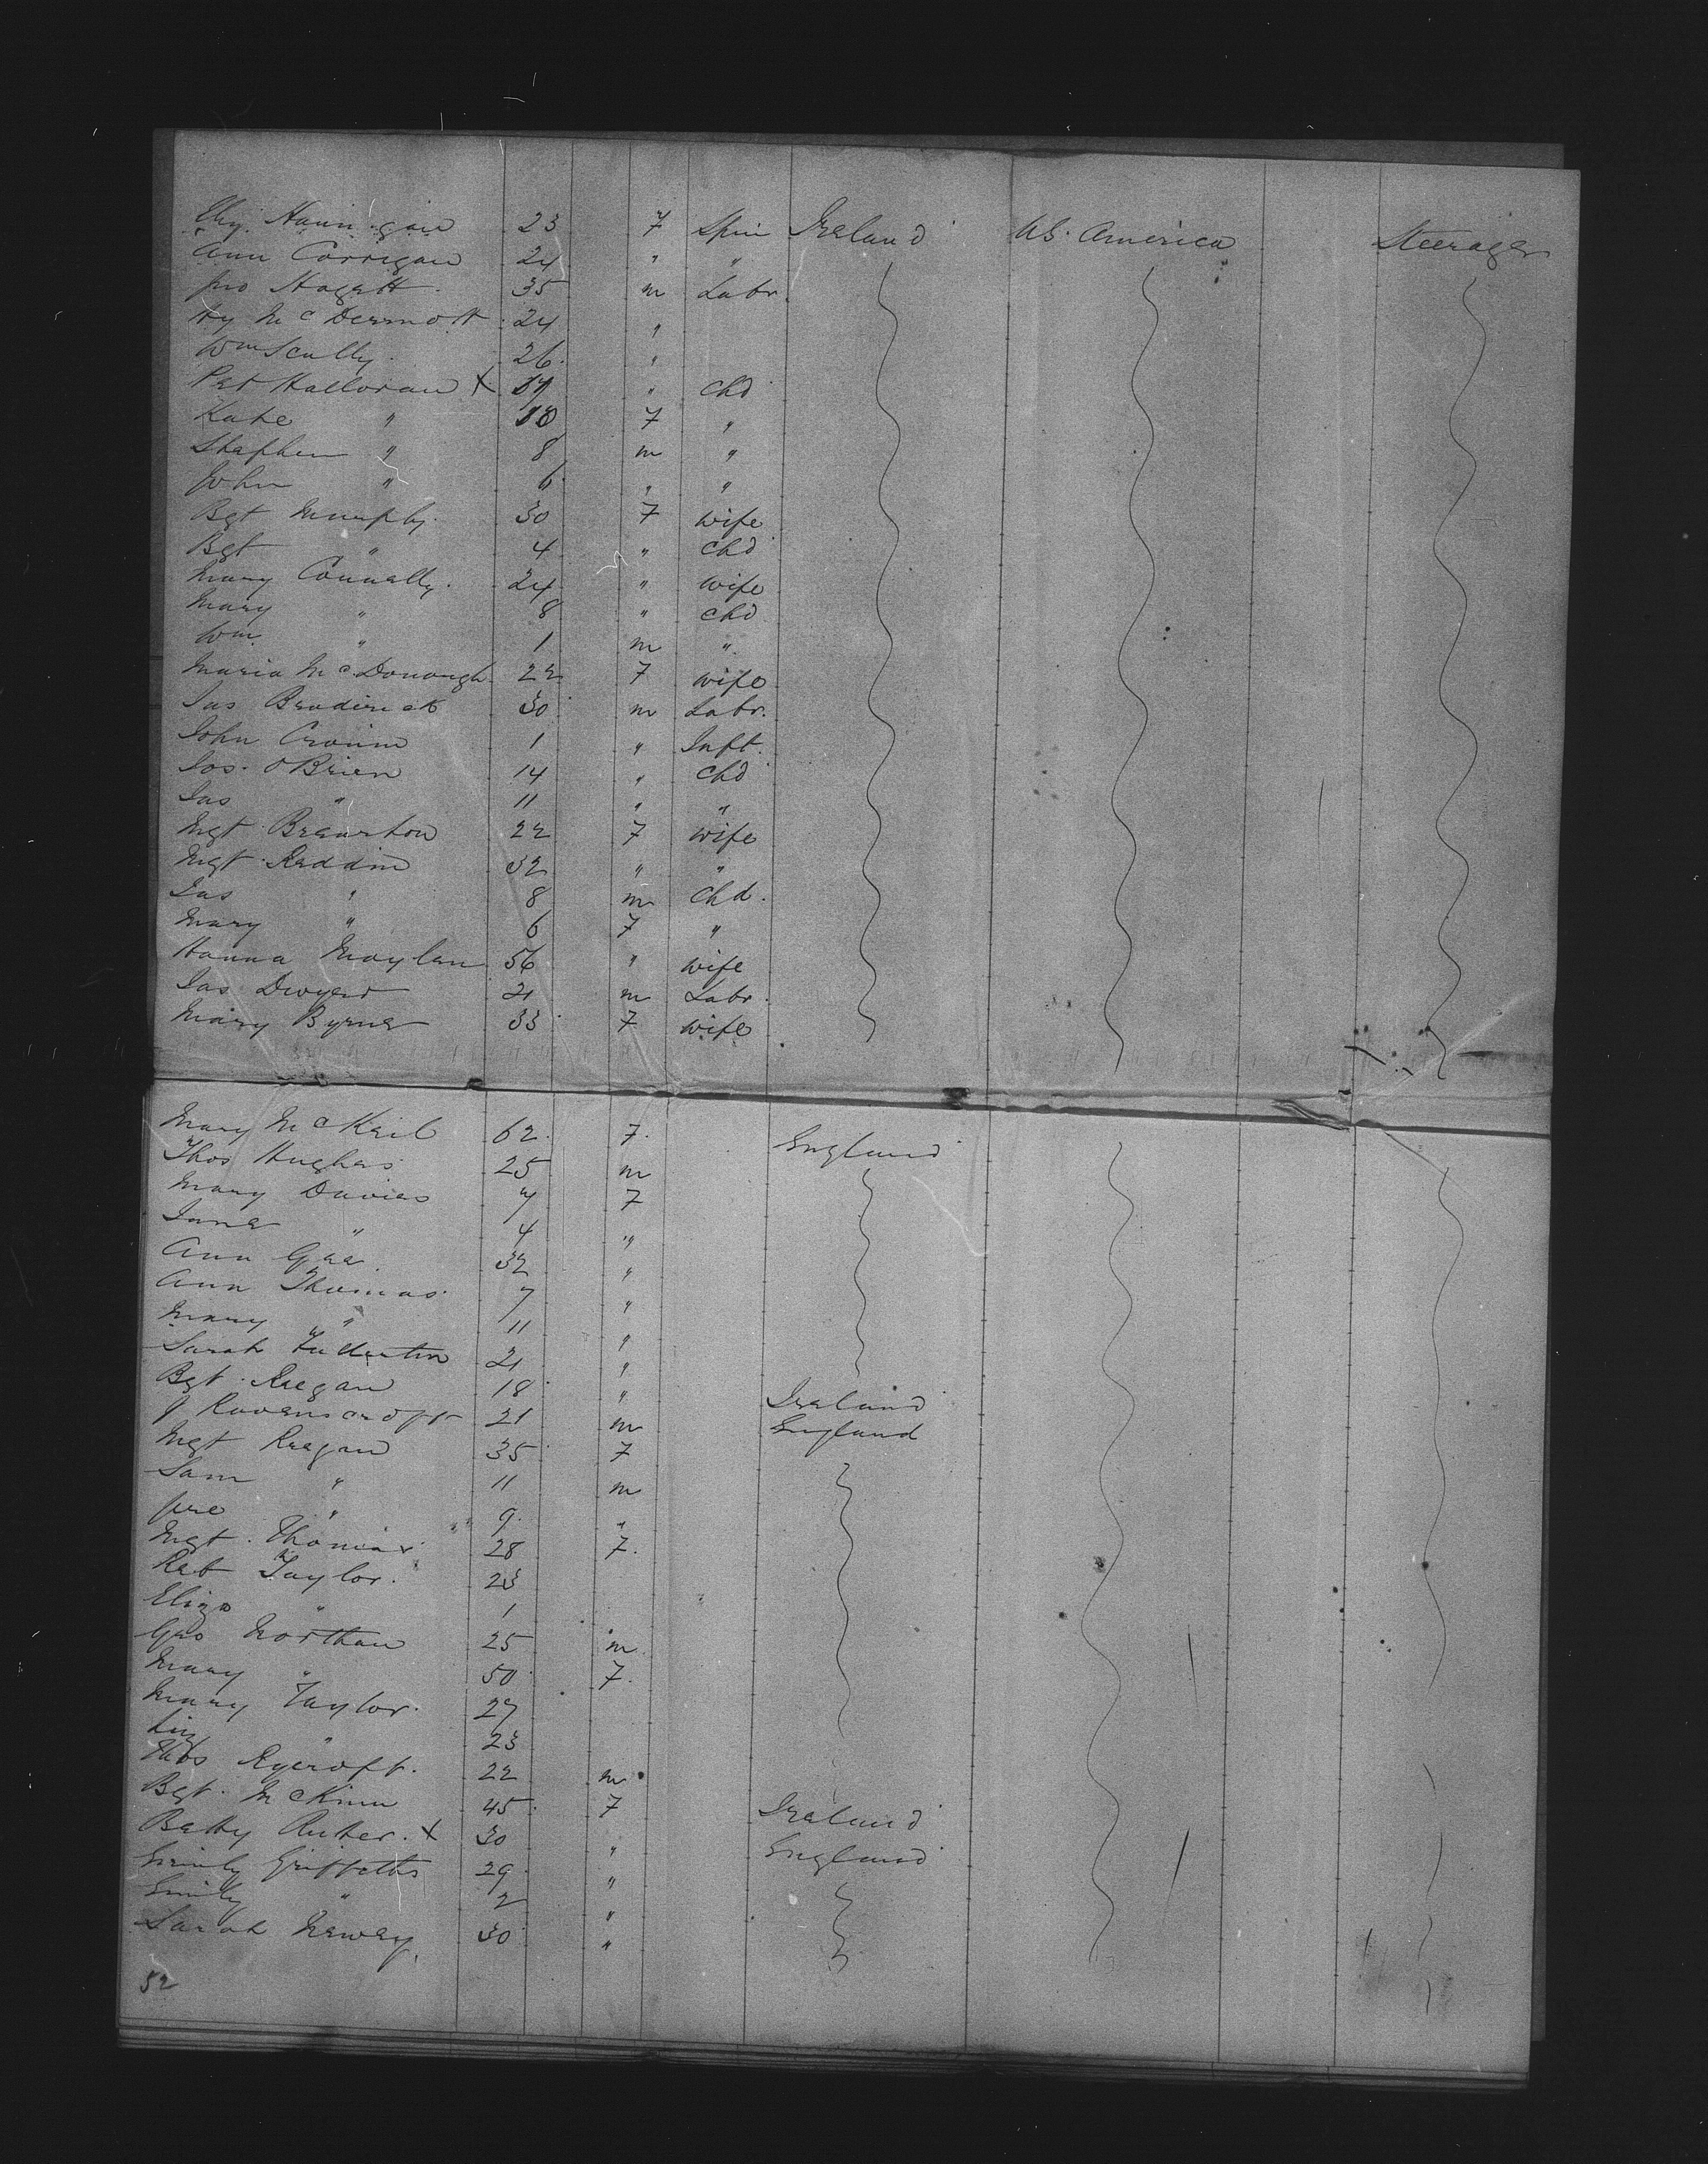 Elzy Hannigan 23 F Spin Ireland U.S. America Steerage
Ann Corrigan 24 " "
Jno Hagett 35 m Labr.
Hy McDermott 24 "
Wm Scully 26 "
Pat Halloran X " chd
Kate " 10 F "
Stephen " 8 m "
John " 6 " "
Bgt Murphy 30 F wife
Bgt " 4 " chd
Mary Connelly 24 " wife
Mary " 8 " chd
Wm " 1 m "
Maria McDonough 22 F wife
Jas Broderick 30 m Labr.
John Cronin 1 " Inft.
Jos. O'Brien 14 " chd
Jas " 11 " "
Mgt 22 F wife
Mgt Reddin 32 " "
Jas " 8 m chd.
Mary " 6 F "
Hanna Moylan 56 " wife
Jas Dwyer 21 m Labr.
Mary Byrne 33 F wife
Mary McKeil 62 F. England
Thos Hughes 25 m
Mary Davies 7 F
Jane " 4 "
Ann Gee 32 "
Ann Thomas 7 "
Mary " 11 "
Sarah Fullerton 21 "
Bgt Regan 18 " Ireland
J Ravenscroft 21 m England
Mgt Reagan 35 F
Sam " 11 m
Jno " 9 "
Mgt Thomas 28 F.
Reb Taylor. 23
Eliza " 1
Geo Northan 25 m
Mary " 50 F.
Mary Taylor. 27
Liz " 23
Thos Rycroft. 22 m
Bgt. McKinn 45 F Ireland
Betty X 30 " England
Emily Griffiths 29 "
Emily " 2 "
Sarah Newey 30 "
52